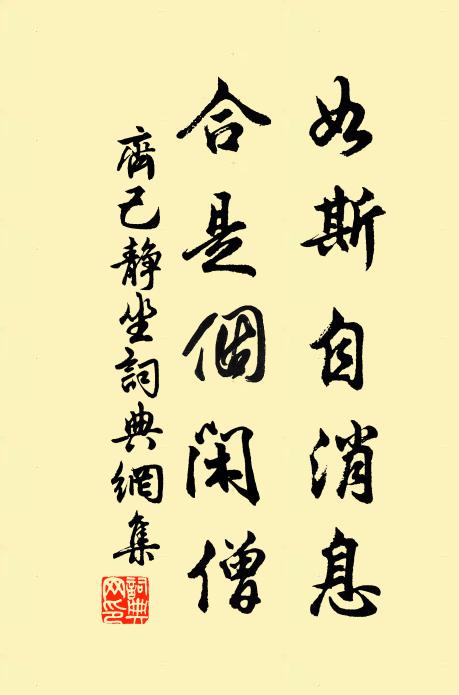 如斯自消息
合是個閑僧
齊己靜坐詞典網集
詞典网印